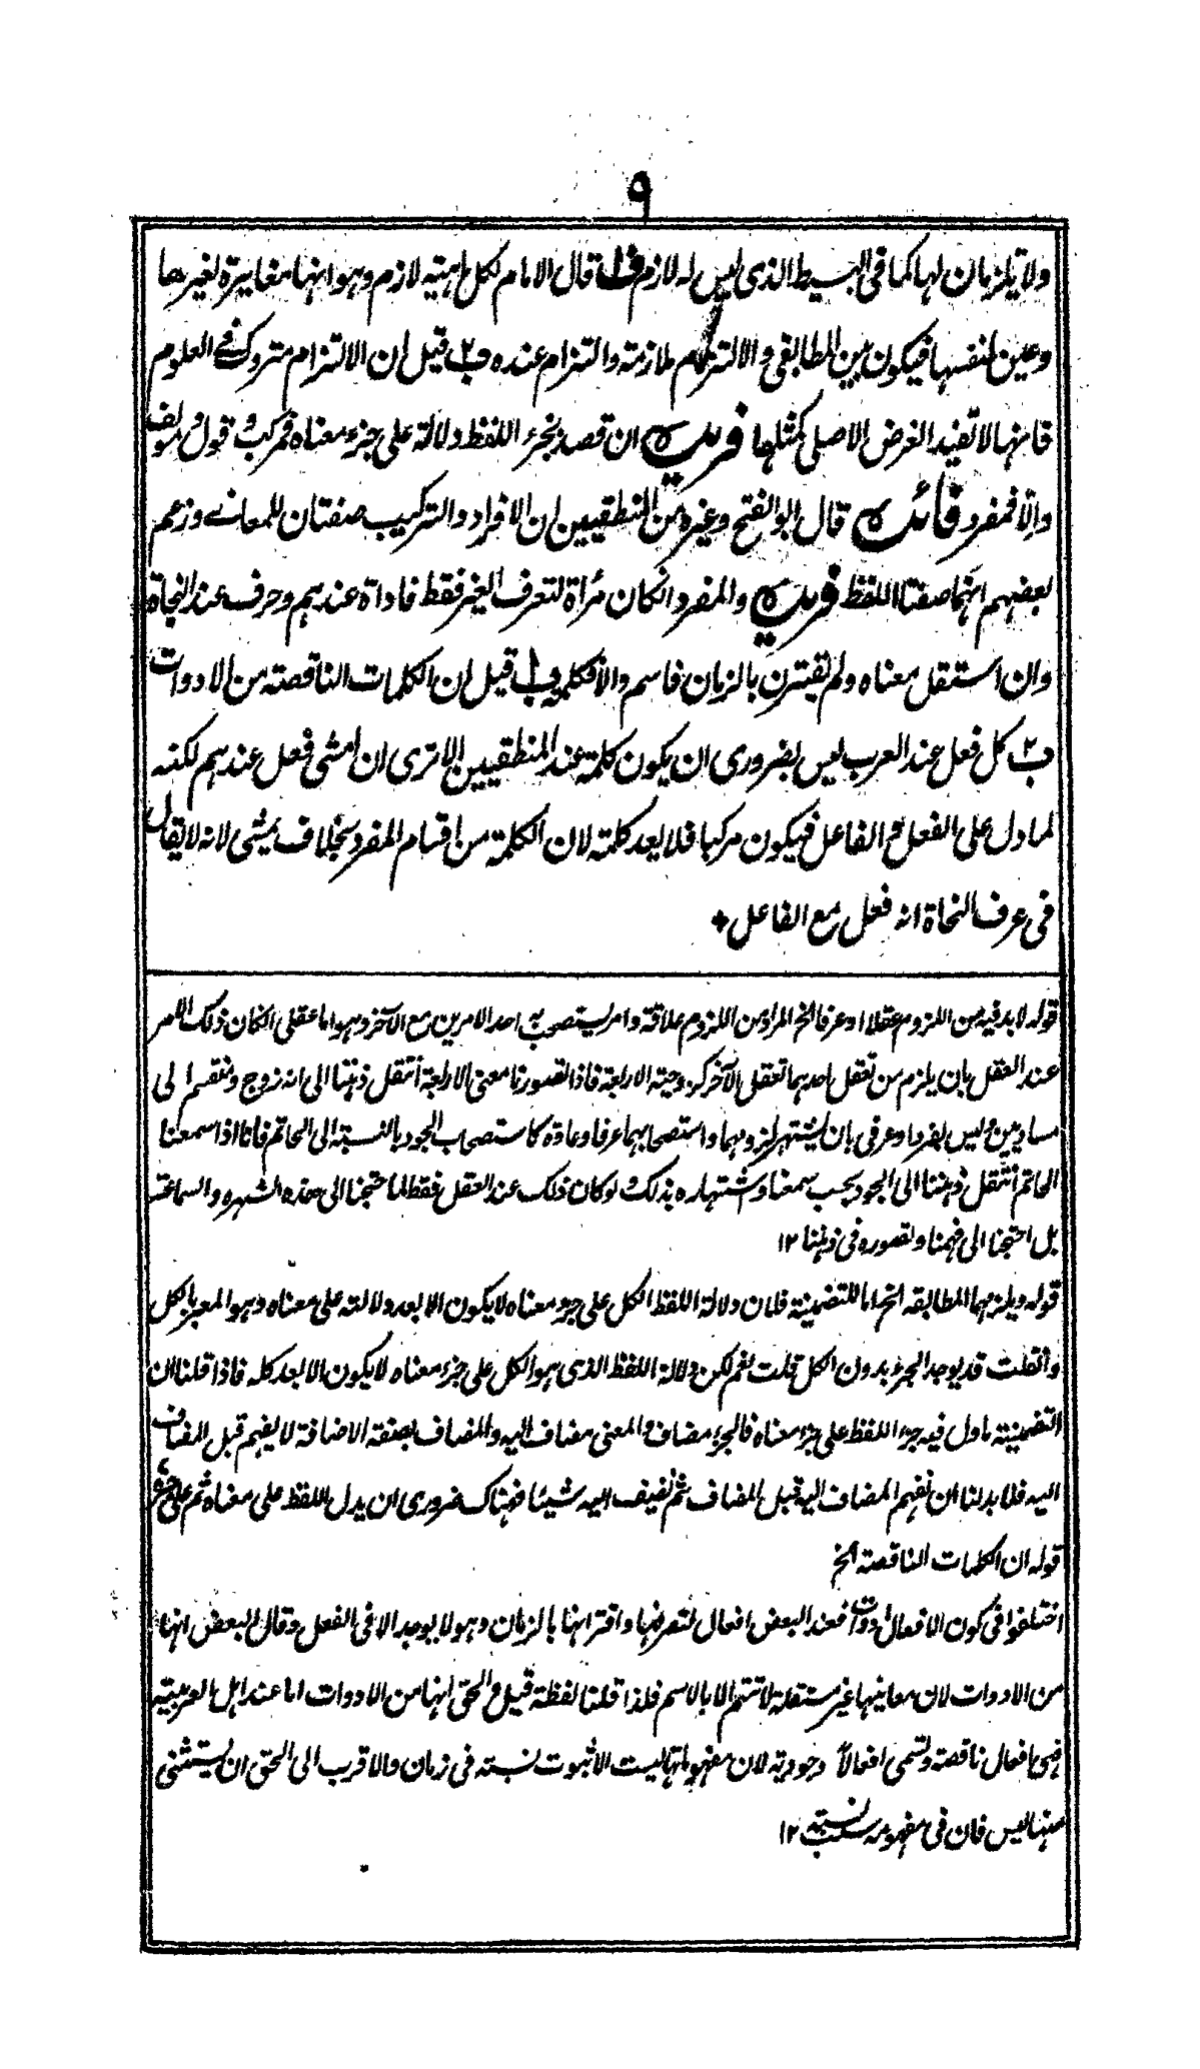 ٩
ولا تلزمان لها كما فى البسيط الذى ليس له لازم ف١ قال الامام لكل ماهية لازم وهو انها مغايرة لغيرها
وعين لنفسها فيكون بين المطابقى والالتزام ملازمة والتزام عنده ف٢ قيل ان الالتزام متروك فے العلوم
فانها لا تفيد الغرض الاصلى كمثلها فريده ان قصد بجزء اللفظ دلالة على جزء معناه فمركب وقول ومؤلف
والّا فمفرد فائده قال ابو الفتح وغيره من المنطقيين ان الافراد والتركيب صفتان للمعانے وزعم
بعضهم انهما صفتا اللفظ فريده والمفرد انكان مرأة لتعرف الغير فقط فاداة عندهم وحرف عند النحاة
وان استقل معناه ولم يقترن بالزمان فاسم والا فكلمة ف١ قيل ان الكلمات الناقصة من الادوات
ف٢ كل فعل عند العرب ليس بضرورى ان يكون كلمة عند المنطقيين الا ترى ان امشى فعل عندهم لكنه
لما دل على الفعل والفاعل فيكون مركبا فلا يعد كلمة لان الكلمة من اقسام المفرد بخلاف يمشى لانه لا يقال
فى عرف النحاة انه فعل مع الفاعل +
قوله لا بد فيه من اللزوم عقلا او عرفا الخ المراد من اللزوم علاقة وامر يستصحب به احد الامرين مع الآخر وهو اما عقلى انكان ذلك الامر
عند العقل بان يلزم من تعقل احدهما تعقل الآخر كزوجية الاربعة فاذا تصورنا معنى الاربعة انتقل ذهننا الى انه زوج ومنقسم الى
مساويين وليس بفرد او عرفى بان يشتهر لزومهما واستصحابهما عرفا وعادة كاستصحاب الجود بالنسبة الى الحاتم فانا اذا سمعنا
الحاتم انتقل ذهننا الى الجود بحسب سمعنا واشتهاره بذلك ولو كان ذلك عند العقل فقط لما احتجنا الى هذه الشهره والسماعة
بل احتجنا الى فهمنا وتصوره فى ذهننا ١٢
قوله ويلزمهما المطابقه الخ اما للتضمنية فلان دلالة اللفظ الكل على جزء معناه لا يكون الا بعد دلالته على معناه وهو المعبر بالكل
وان قلت قد يوجد الجزء بدون الكل قلت نعم لكن دلالة اللفظ الذى هو الكل على جزء معناه لا يكون الا بعد كله فاذا قلنا ان
التضمنية ما دل فيه جزء اللفظ على جزء معناه فالجزء مضاف والمعنى مضاف اليه والمضاف بصفة الاضافة لا يفهم قبل المضاف
اليه فلا بد لنا ان نفهم المضاف اليه قبل المضاف ثم نضيف اليه شيئا فهناك ضرورى ان يدل اللفظ على معناه ثم على جزءه
قوله ان الكلمات الناقصة الخ
اختلفوا فى كون الافعال ادوات فعند البعض افعال لتصرفها واقترانها بالزمان وهو لا يوجد الا فى الفعل وقال البعض انها
من الادوات لان معانيها غير مستقلة لا تتم الا بالاسم فلذا قلنا لفظة قيل والحق انها من الادوات اما عند اهل العربية
فهى افعال ناقصة وتسمى افعالا وجودية لان مفهوماتها ليست الا ثبوت نسبته فى زمان والاقرب الى الحق ان يستثنى
منها ليس فان فى مفهومه سلب نسبته ١٢